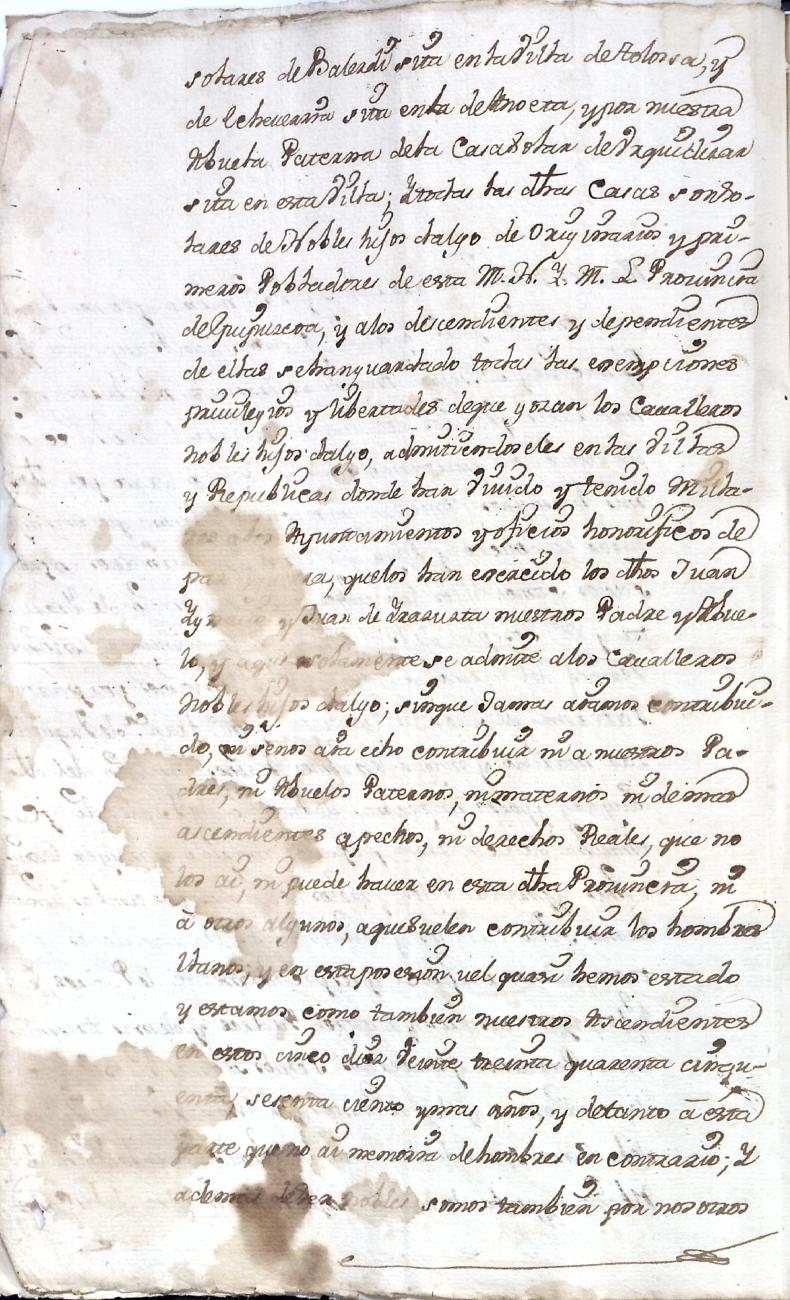 solares de Balerdi sita en la Villa de tolossa, y
de Echeverria sita en la de Anoeta, y por nuestra
Abuela Paterna de la Casa Solar de Urquidizar
sita en esta Villa; Y todas las dthas Casas son so-
lares de Nobles hijos dalgo de Originarios y pri-
meros Pobladores de esta M. N. Y. M. L Provincia
de Guipuzcoa, y a los descendientes y dependientes
de ellas se han guardado todas las exempciones
privilegios y libertades de que gozan los Cavalleros
nobles hijos dalgo, admitiendoseles en las Villas
y Republicas donde han Vivido y tenido Milla-
res a los Ayuntamientos y oficios honorificos de
quelos han exercido los dthos Juan
y Juan de Yrazusta nuestros Padre y Abue-
lo, y aque solamente se admite a los Cavalleros
nobles hijos dalgo; sinque Jamas aiamos contribui-
do, ni senos aia echo contribuir ni a nuestros Pa-
dres, ni Abuelos Paternos, ni maternos ni demas
ascendientes apechos, ni derechos Reales, que no
los ai, ni puede haver en esta dtha Provincia, ni
à otros algunos, aque suelen contribuir los hombres
llanos; y en esta posesion vel quasi hemos estado
y estamos como tambien nuestros Ascendientes
en estos cinco diez Veinte treinta quarenta cinqu-
enta, sesenta ciento y mas años, y de tanto à esta
parte que no ai memoria de hombres en contrario; Y
ademas de ser nobles somos tambien por nosotros